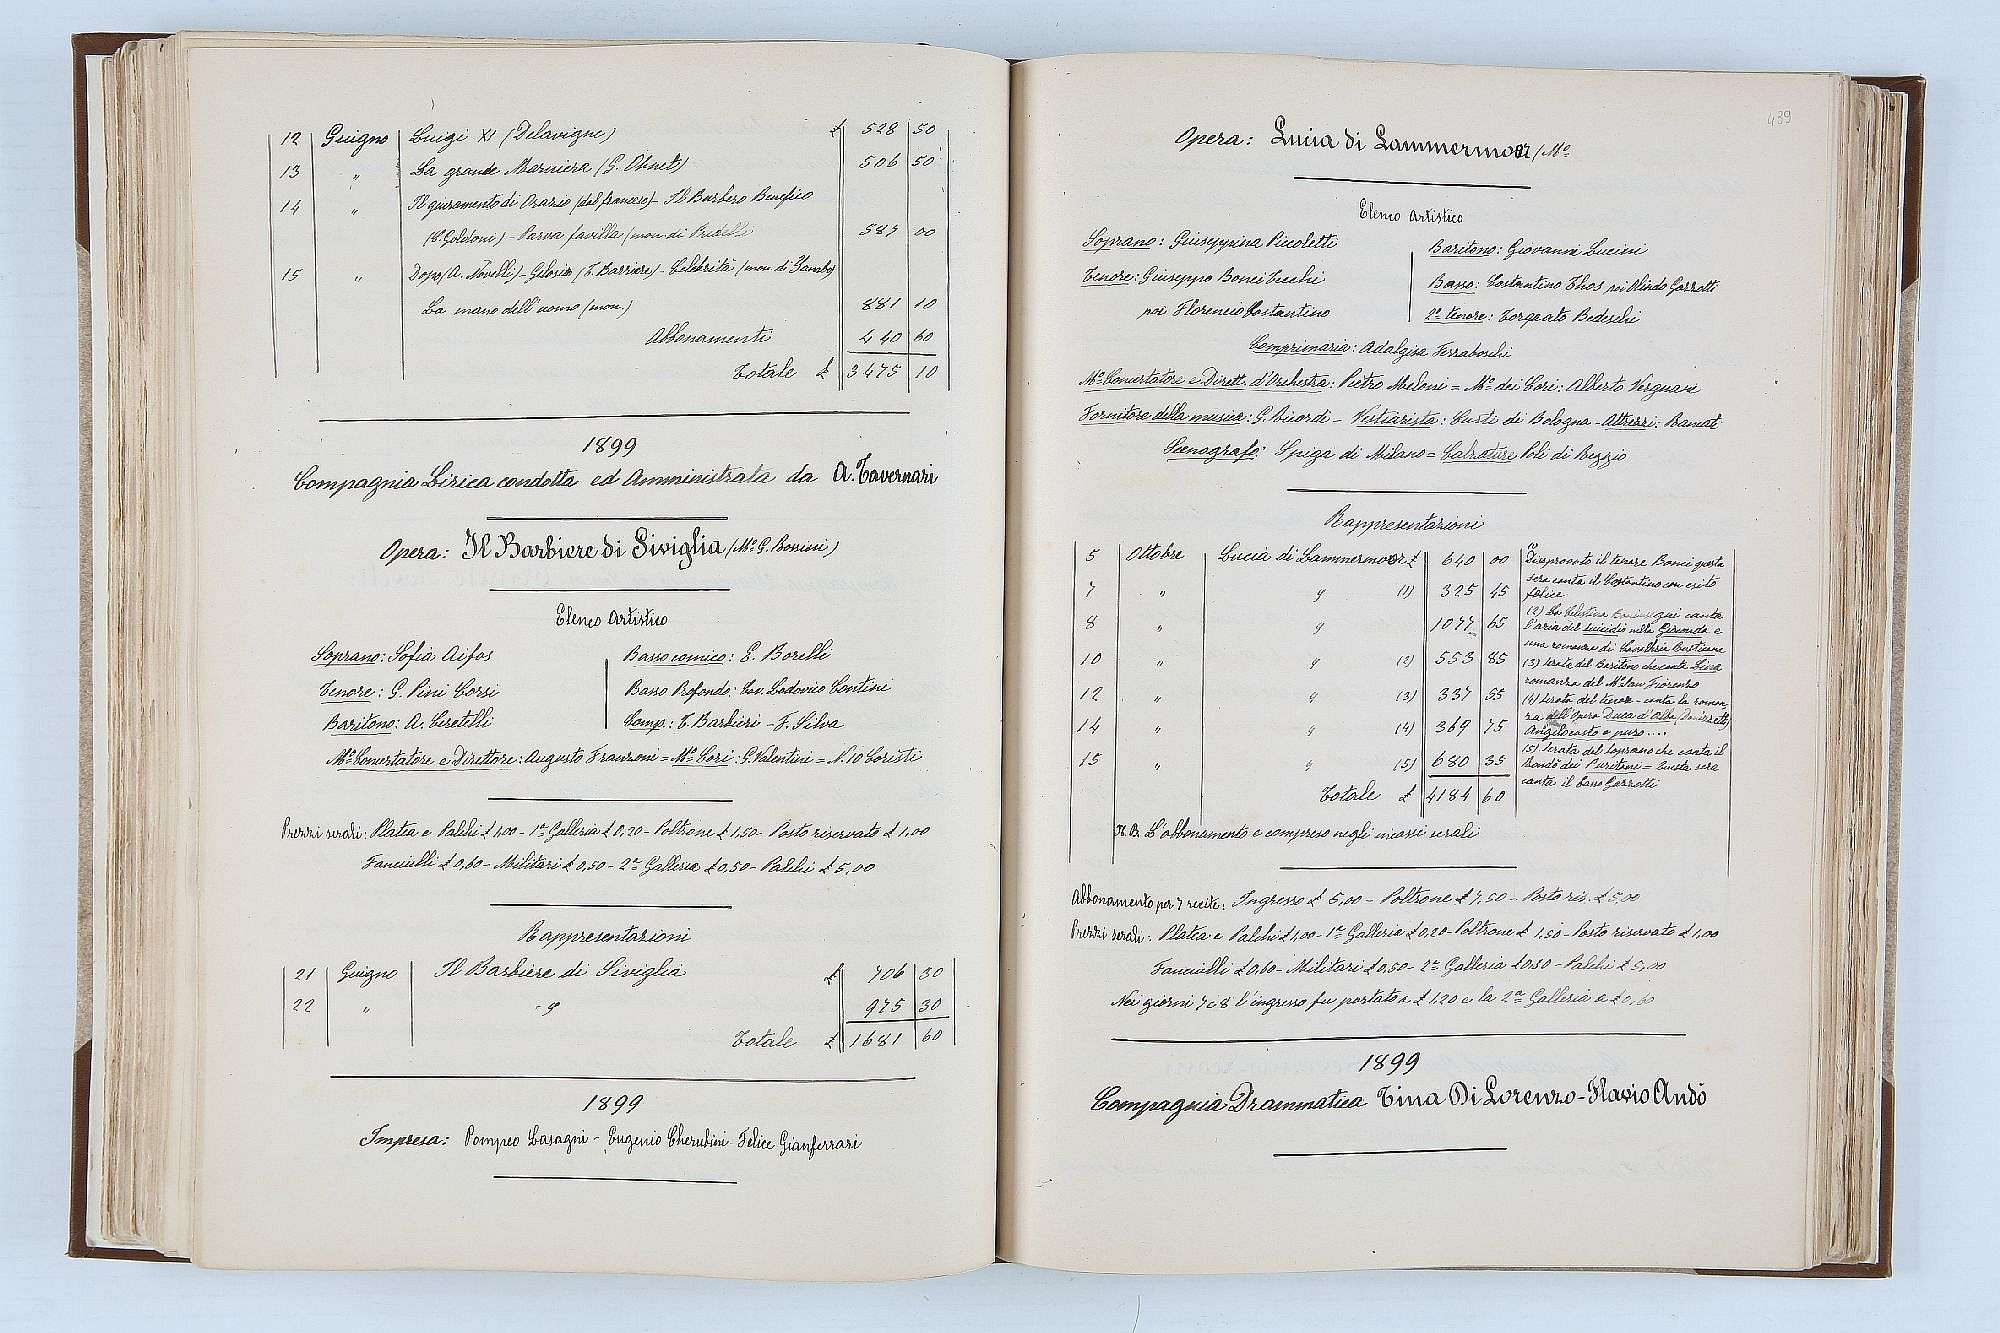 12 Giugno Luigi XI (Delavigne) £ 528 50
13 " La grande Marniera (G. Ohnet) 506 50
14 " Il giuramento di Orazio (dal francese) - Il Burbero Benefico
(C. Goldoni) - Parva favilla (mon. di 587 00
15 " Dopo (A. Novelli) - Gelosia (T. Barriere) - Celebrità (mon. di
La mano dell'uomo (mon.) 881 10
Abbonamenti 440 60
Totale £ 3475 10
1899
Compagnia Lirica condotta ed Amministrata da A. Tavernari
Opera: Il Barbiere di Siviglia (Mo. G. Rossini)
Elenco Artistico
Soprano: Sofia Aifos
Tenore: G. Pini Corsi
Baritono: A.
Basso comico: E. Borelli
Basso Profondo: Cav. Lodovico Contini
Comp.: T. Barbieri - F. Silva
Mo. Concertatore e Direttore: Augusto Franzoni = Mo. Cori: G. Valentini = N. 10 Coristi
Prezzi serali: Platea e Palchi £ 1,00 - 1a Galleria £ 0,20 - Poltrone £ 1,50 - Posto riservato £ 1,00
Fanciulli £ 0,60 - Militari £ 0,50 - 2a Galleria £ 0,50 - Palchi £ 5,00
Rappresentazioni
21 Giugno Il Barbiere di Siviglia £ 706 30
22 " " 975 30
Totale £ 1681 60
1899
Impresa: Pompeo Casagni - Eugenio Cherubini Felice Gianferrari
439
Opera: Lucia di Lammermoor (Mo.
Elenco Artistico
Soprano: Giuseppina Piccoletti
Tenore: Giuseppe Bonci
poi Florencio Costantino
Baritono: Giovanni Lucini
Basso: Costantino Thos poi Olindo Garrotti
2o tenore: Torquato Bedeschi
Comprimaria: Adalgisa Ferraboschi
Mo. Concertatore e Dirett. d'Orchestra: Pietro Meloni = Mo. dei Cori: Alberto Vergnani
Fornitore della musica: G. Ricordi - Vestiarista: di Bologna - Attrezzi: Rancati
Scenografo: Spiga di Milano = Calzature Poli di Reggio
Rappresentazioni
5 Ottobre Lucia di Lammermoor £ 640 00
7 " " (1) 325 45
8 " " 1077 65
10 " " (2) 553 85
12 " " (3) 337 55
14 " " (4) 369 75
15 " " (5) 680 35
Totale £ 4184 60
(1) Disaprovato il tenore Bonci questa
sera canta il Costantino con esito
felice
(2) La Celestina qui canta
l'aria del suicidio nella Gioconda e
una romanza di Cavalleria Rusticana
(3) Serata del Baritono che canta Lina
romanza del Mo. San Fiorenzo
(4) Serata del tenore - canta la roman-
za dell'Opera Duca d'Alba, Donizzetti,
Angelo casto e puro....
(5) Serata del soprano che canta il
Rondò dei Puritani = Questa sera
canta il basso Garrotti
N. B. L'abbonamento e compreso negli incassi serali
Abbonamento per 7 recite: Ingresso £ 5,00 - Poltrone £ 7,50 - Posto ris. £ 5,00
Prezzi serali: Platea e Palchi £ 1,00 - 1a Galleria £ 0,20 - Poltrone £ 1,50 - Posto riservato £ 1,00
Fanciulli £ 0,60 - Militari £ 0,50 - 2a Galleria £ 0,50 - Palchi £ 5,00
Nei giorni 7 e 8 l'ingresso fu portato a £ 1,20 e la 2a Galleria a £ 0,60
1899
Compagnia Drammatica Tina Di Lorenzo - Flavio Andò